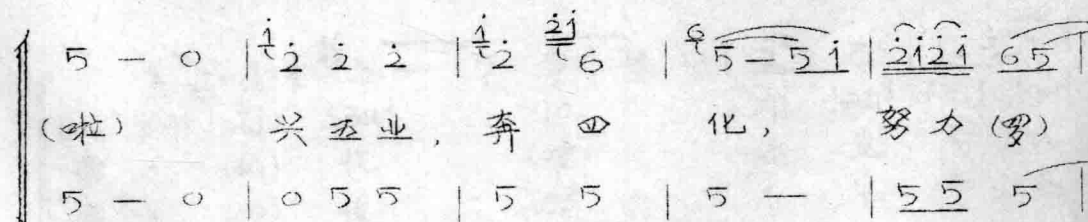 5 — 0 | i̇ 2̇ 2̇ 2̇ | i̇ 2̇ 2̇i̇ 6 | 6 5 — 5 i̇ | 2̇i̇2̇i̇ 6 5 |
(啦) 兴五业，奔四化，努力(罗)
5 — 0 | 0 5 5 | 5 5 | 5 — | 5 5 5 |